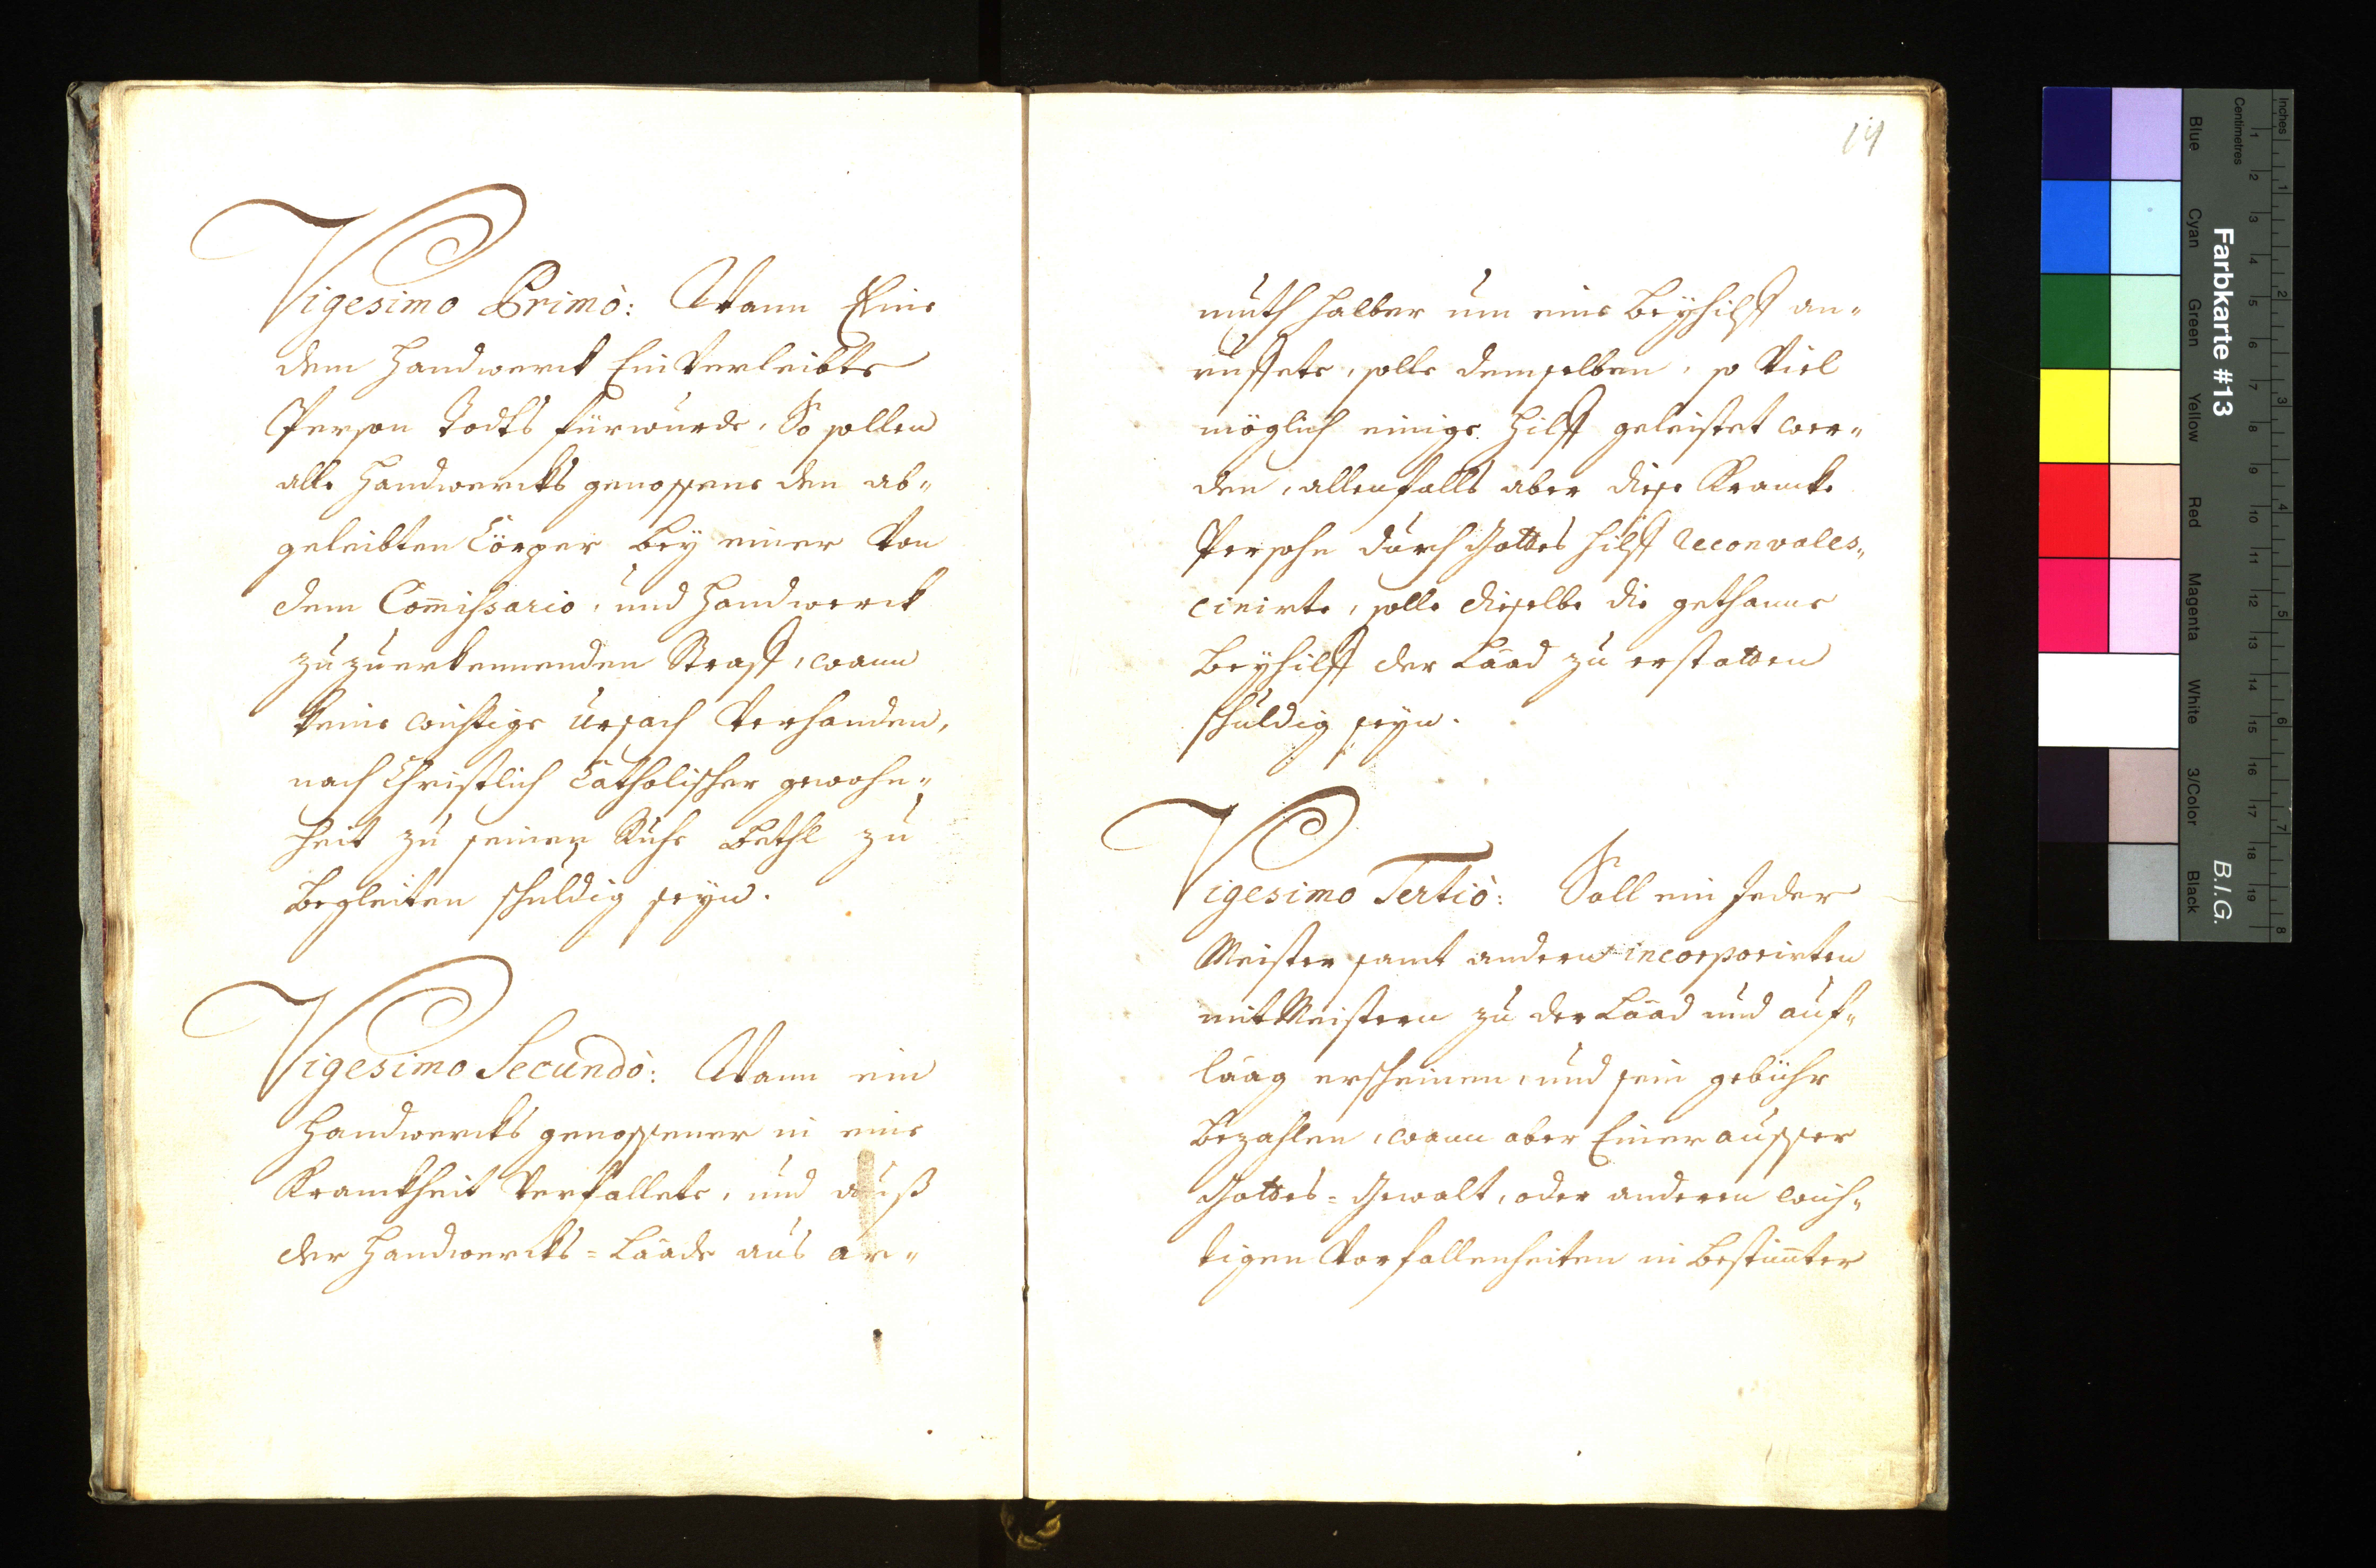 Vigesimo Primò: Wann Eine
dem Handwerck Einverleibte
Person Todts fürwurde, So sollen
alle Handwercks genossene den ab„
geleibten Cörper bey einer von
dem Com̄issario, und Handwerck
zuzuerkennenden Straff, wann
keine wichtige Ursach verhanden,
nach Christlich Catholischer gewohn„
heit zu seinen Ruhe Bethl zu
begleiten schuldig seyn.
Vigesimo Secundò: Wann ein
Handwercks genossener in eine
Kranckheit verfallete, und auß
der Handwercks=Laade aus ar„
14
muth halber um eine Beyhilff an„
ruffete, solle demselben, so viel
möglich einige Hilff geleistet wer„
den, allenfalls aber diese Krancke
Persohn durch Gottes Hilff Reconvales„
cirirte, solle dieselbe die gethanne
Beyhilff der Laad zu erstatten
schuldig seyn.
Vigesimo Tertiò: Soll ein Jeder
Meister samt andern incorporirten
mitMeistern zu der Laad und auf„
laag erscheinen, und sein gebühr
bezahlen, wann aber Einer ausser
Gottes=Gewalt, oder anderen wich„
tigen Vorfallenheiten in bestim̄ter
Inches
Centimetres
1 2 3 4 5 6 7 8
1 2 3 4 5 6 7 8 9 10 11 12 13 14 15 16 17 18 19
Farbkarte #13
B.I.G.
Blue
Cyan
Green
Yellow
Red
Magenta
White
3/Color
Black